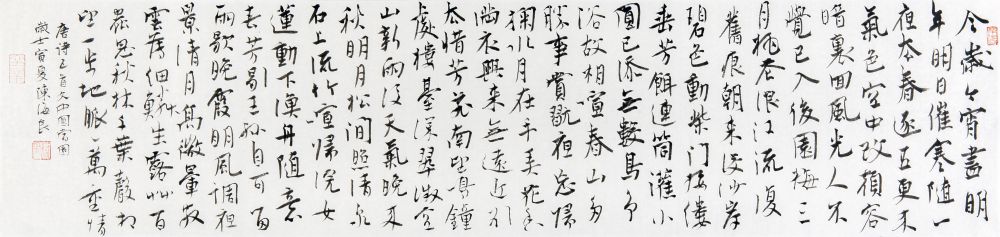 今歲今宵盡明
年明日催寒隨一
夜去春逐五更來
氣色空中改顏容
暗裏回風光人不
覺已入後園梅三
月桃花浪江流復
舊痕朝來没沙岸
碧色動柴門接縷
垂芳餌連筒灌小
園已添無數鳥爭
浴故相喧春山多
勝事賞翫夜忘歸
掬水月在手弄花香
滿衣興來無遠近欲
去惜芳菲南望鳴鐘
處樓臺深翠微空
山新雨後天氣晚來
秋明月松間照清泉
石上流竹喧歸浣女
蓮動下漁舟隨意
春芳歇王孫自可留
雨歇晚霞明風調夜
景清月高微暈散
雲薄細鱗生露草百
蟲思秋林千葉聲相
望一步地脈脈萬重情
唐詩五首
陳海良